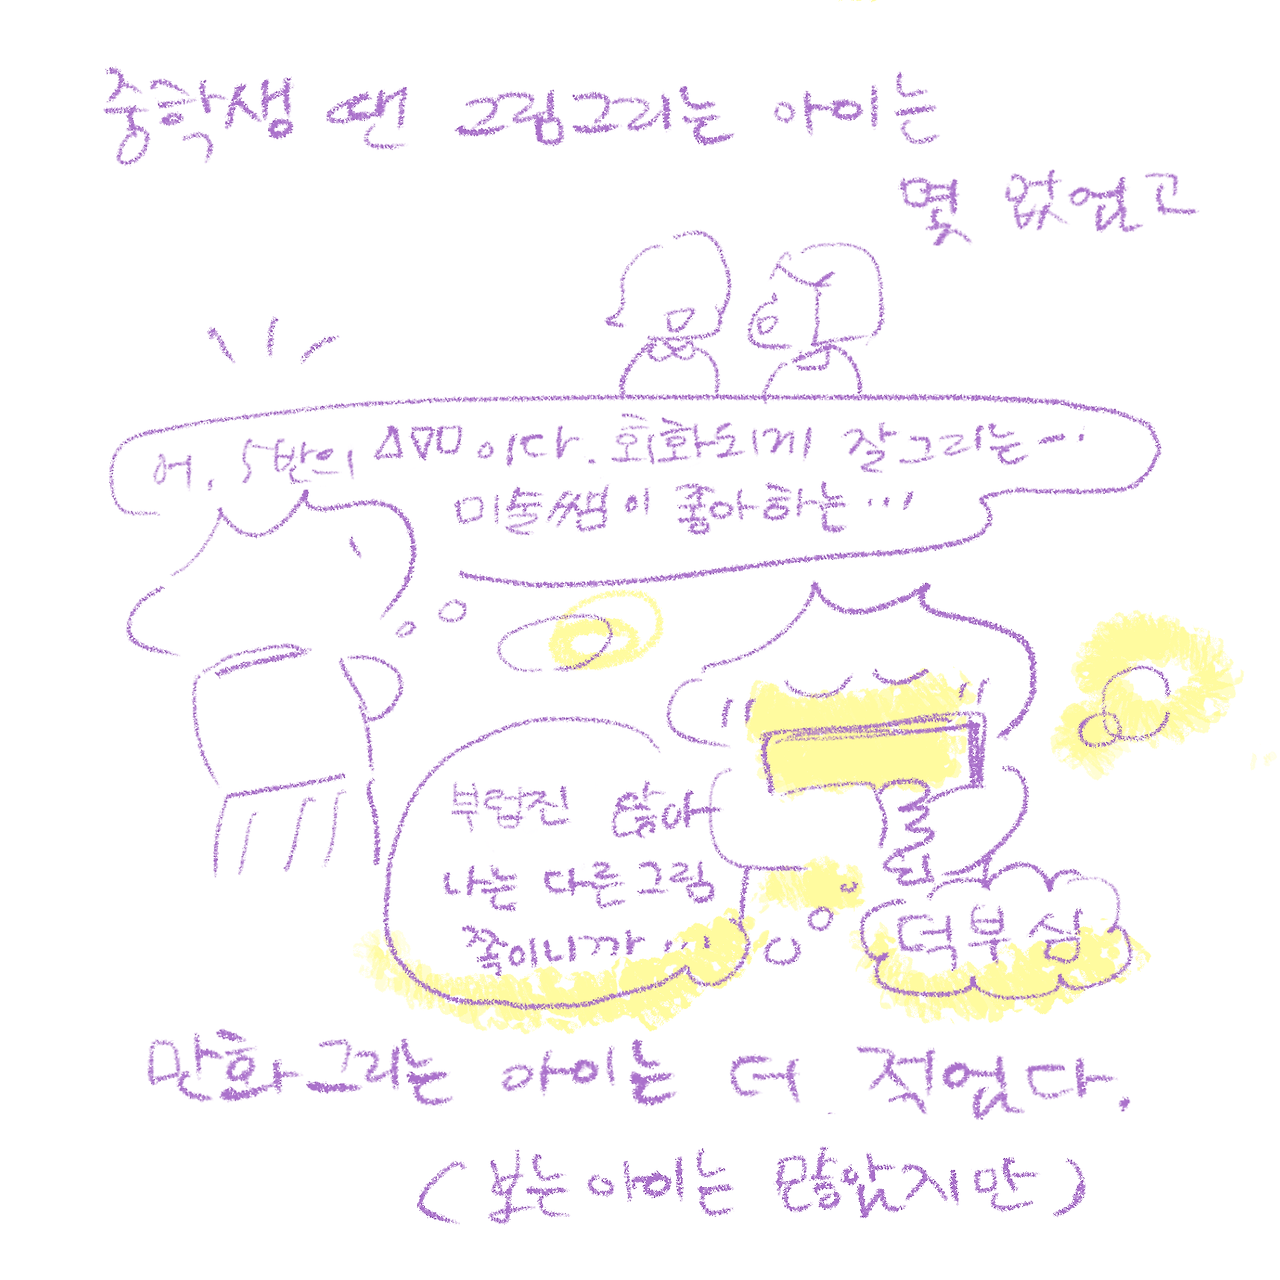 중학생 땐 그림그리는 아이는
몇 없었고
어, 5반의 △▽□이다. 회화되게 잘그리는…
미술쌤이 좋아하는…
부럽진 않아
나는 다른그림
쪽이니까…
덕부심
만화 그리는 아이는 더 적었다.
(보는아이는 많았지만)